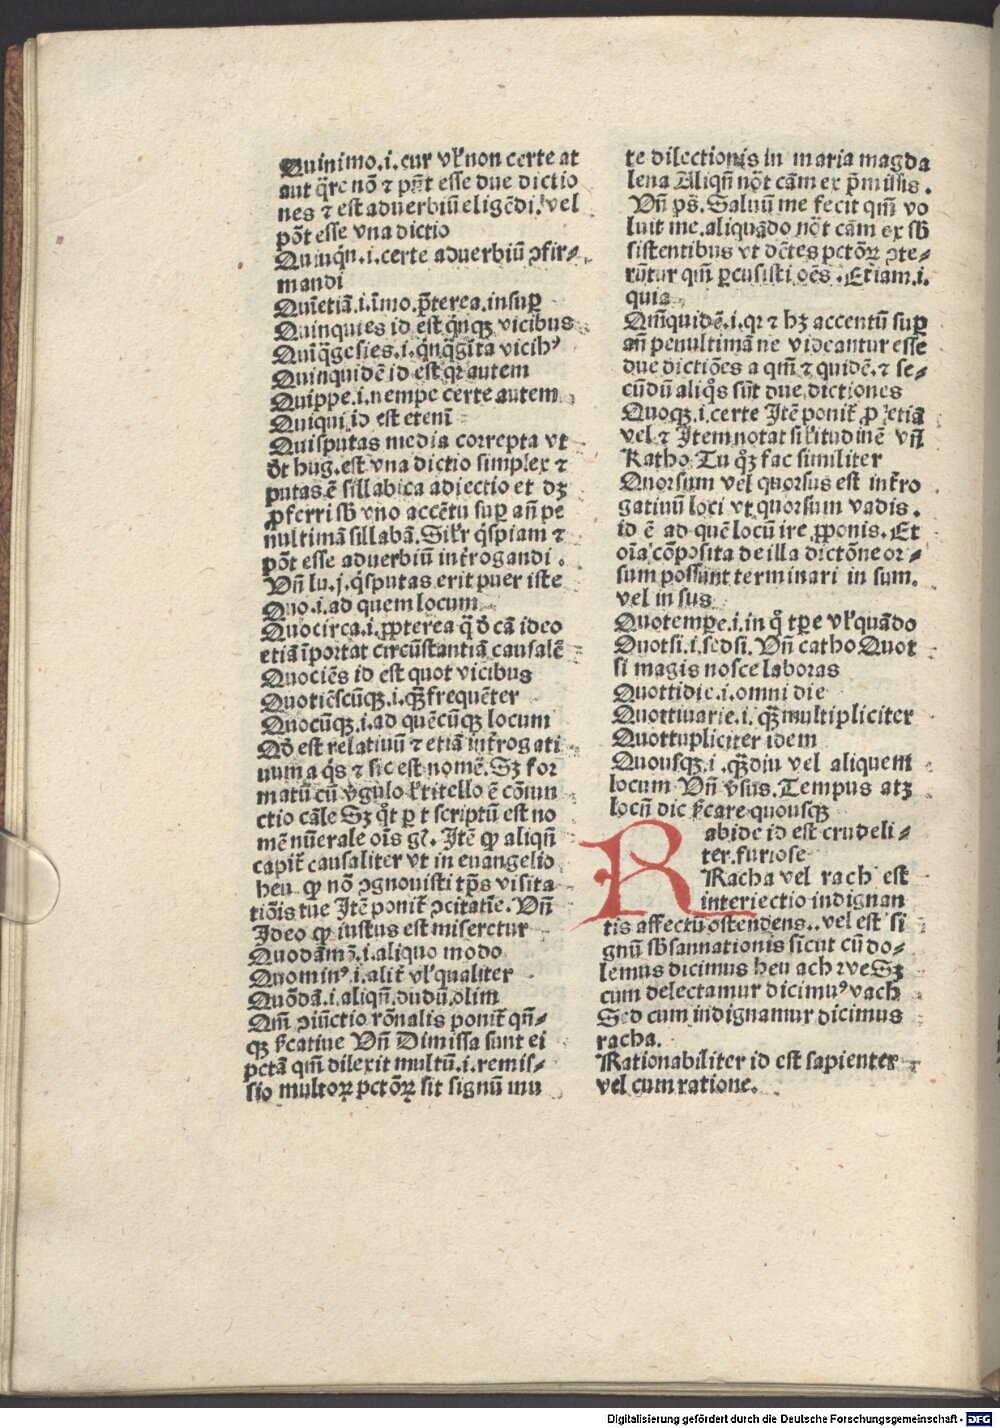 Quinimo.i.cur vl̕ non certe at
aut q̄re nō ⁊ pn̄t esse due dictio
nes ⁊ est aduerbiū eligēdi. vel
pōt esse vna dictio
certe aduerbiū ꝯfir⸗
mandi
Quīetiā.i.īmo.p̄terea.insuꝑ
Quinquies id est q̄nqꝫ vicibus
Quinquidē id est qr autem
Quippe.i.nempe certe autem
Quiqui id est eteni̅
Quisputas media correpta vt
dt̄ hug. est vna dictio simplex ⁊
putas ē sillabica adiectio et dꝫ
ꝓferri sb̄ vno accētu suꝑ an̄ pe
nultimā sillabā. Silr̄ q̇spiam ⁊
pōt esse aduerbiū int̄rogandi.
Vn̄ lu.j. q̇sputas erit puer iste
Quo.i.ad quem locum
Quocirca.i.ꝓpterea q̄ d̄ cā ideo
etiā īportat circūstantiā causalē
Quociēs id est quot vicibus
Quotiēscūqꝫ.i.qꝫ̄ frequēter
Quocūqꝫ.i.ad quēcūqꝫ locum
Qd̄ est relatiuū ⁊ etiā int̄rogati
uum a q̇s ⁊ sic est nomē. Sꝫ for
matū cū v̄gulo l̕ titello ē cōiun
ctio cāle Sꝫ q̇t ꝑ t scriptū est no
mē nūerale oīs gl̕. Itē ꝙ aliqn̄
capit̄ causaliter vt in euangelio
heu ꝙ nō ꝯgnouisti tp̄s visita
tiōis tue Itē ponit̄ ꝯcitatīe. Vn̄
Ideo ꝙ iustus est miseretur
Quodāmō.i.aliquo modo
Quominꝰ.i.alit̄ vl̕ qualiter
Quōdā.i.aliqn̄.dudū.olim
Qm̄ ꝯiūctio rōnalis ponit̄ qn̄⸗
qꝫ Vn̄ Dimissa sunt ei
pctā qm̄ dilexit multū.i.remis⸗
sio multoꝝ pctōꝝ sit signū mu
te dilectionis in maria magda
lena Aliqn̄ nōt cām ex p̄missis.
Vn̄ ps̄. Saluū me fecit qm̄ vo
luit me. aliquādo nōt cām ex sb̄
sistentibus vt dētes pctōꝝ ꝯte⸗
rūtur qm̄ ꝑcusisti oēs. Etiam.i.
quia
Qm̄quidē.i.qr ⁊ hꝫ accentū suꝑ
an̄ penultimā ne videantur esse
due dictiōes a qm̄ ⁊ quidē. ⁊ se⸗
cūdū aliq̇s sūt due dictiones
Quoqꝫ.i.certe Itē ponit̄ ꝓ etia
vel ⁊ Item notat sil̕itudinē vn̄
Katho Tu qꝫ̄ fac similiter
Quorsum vel quorsus est int̄ro
gatiuū loci vt quorsum vadis.
id ē ad quē locū ire ꝓponis. Et
oīa cōposita de illa dictōne or⸗
sum possunt terminari in sum.
vel in sus
Quotempe.i.in q̇ tpe vl̕ quādo
Quotsi.i.sedsi. Vn̄ catho Quot
si magis nosce laboras
Quottidie.i.omni die
Quottuarie.i.qꝫ̄ multipliciter
Quottupliciter idem
Quousqꝫ.i.qꝫ̄diu vel aliquem
locum Vn̄ v̄sus. Tempus atꝫ
locū dic quousqꝫ
Rabide id est crudeli⸗
ter.furiose
Racha vel rach est
interiectio indignan
tis affectū ostendens.. vel est si
gnū sb̄sannationis sicut cū do⸗
lemus dicimus heu ach ⁊ ve Sꝫ
cum delectamur dicimuꝰ vach
Sed cum indignamur dicimus
racha.
Rationabiliter id est sapienter
vel cum ratione.
Digitalisierung gefördert durch die Deutsche Forschungsgemeinschaft - DFG